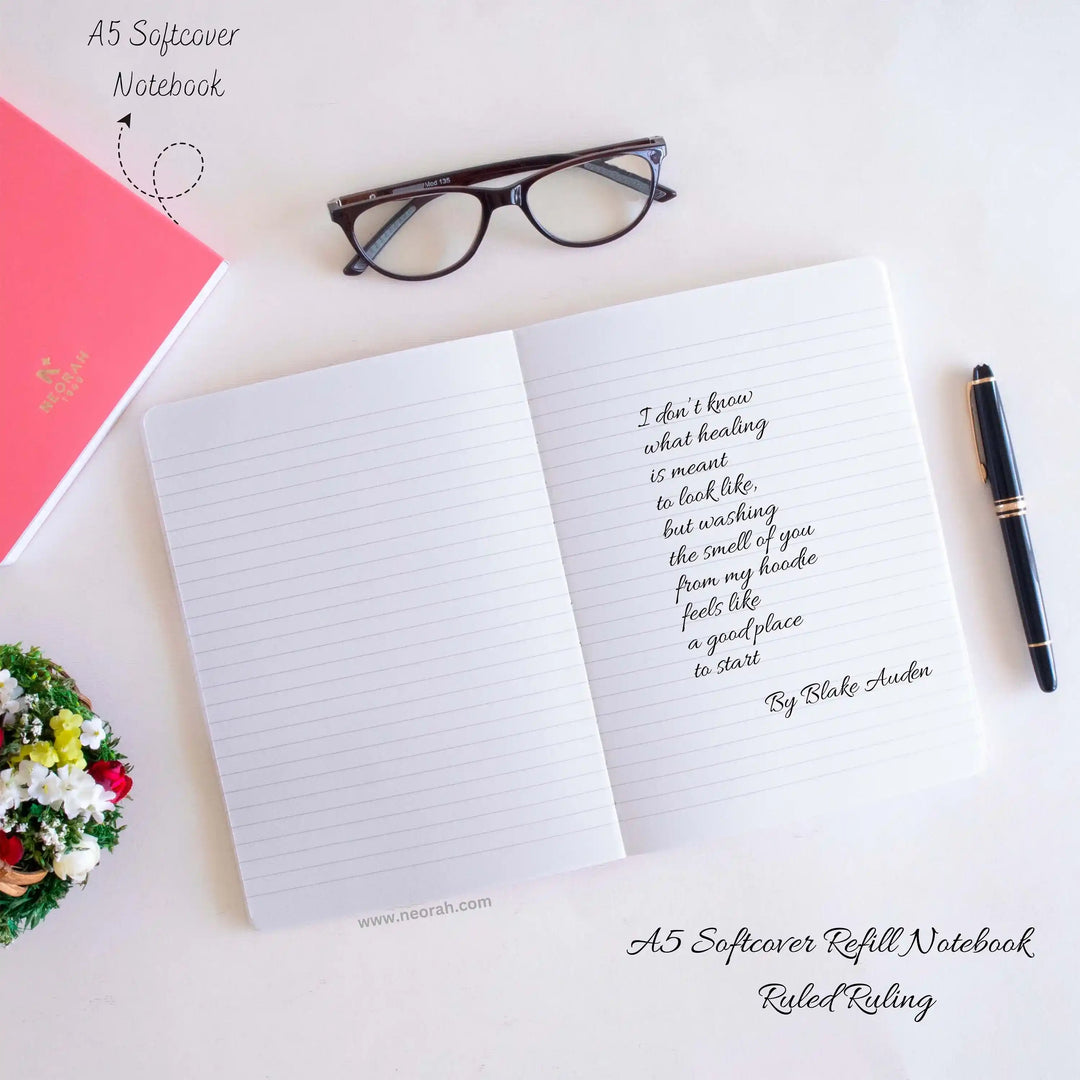 A5 Softcover
Notebook
Mod 135
NEORAH
1949
I don't know
what healing
is meant
to look like,
but washing
the smell of you
from my hoodie
feels like
a good place
to start
By Blake Auden
www.neorah.com
A5 Softcover Refill Notebook
Ruled Ruling